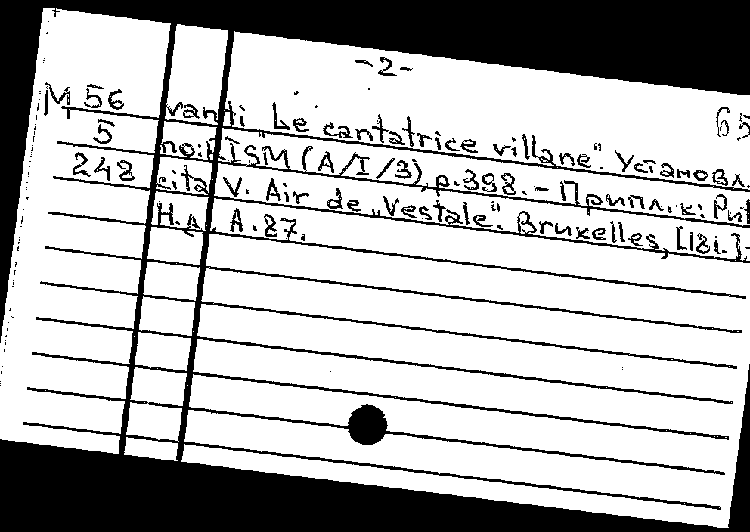 -2-
65
М 56 vanti „Le cantatrice villane“. Установл.
5 по: RISM (A/I/3), p.398. - Приплк: Puc
248 cita V. Air de „Vestale“. Bruxelles, [18i.];
Н.д. A.27.